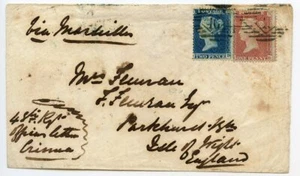 via Marseilles
TWO PENCE
ONE PENNY
Mrs Fleuran
Esqr
Parkhurst
Isle of Wight
England
48th Regt
Officers letter
Crimea